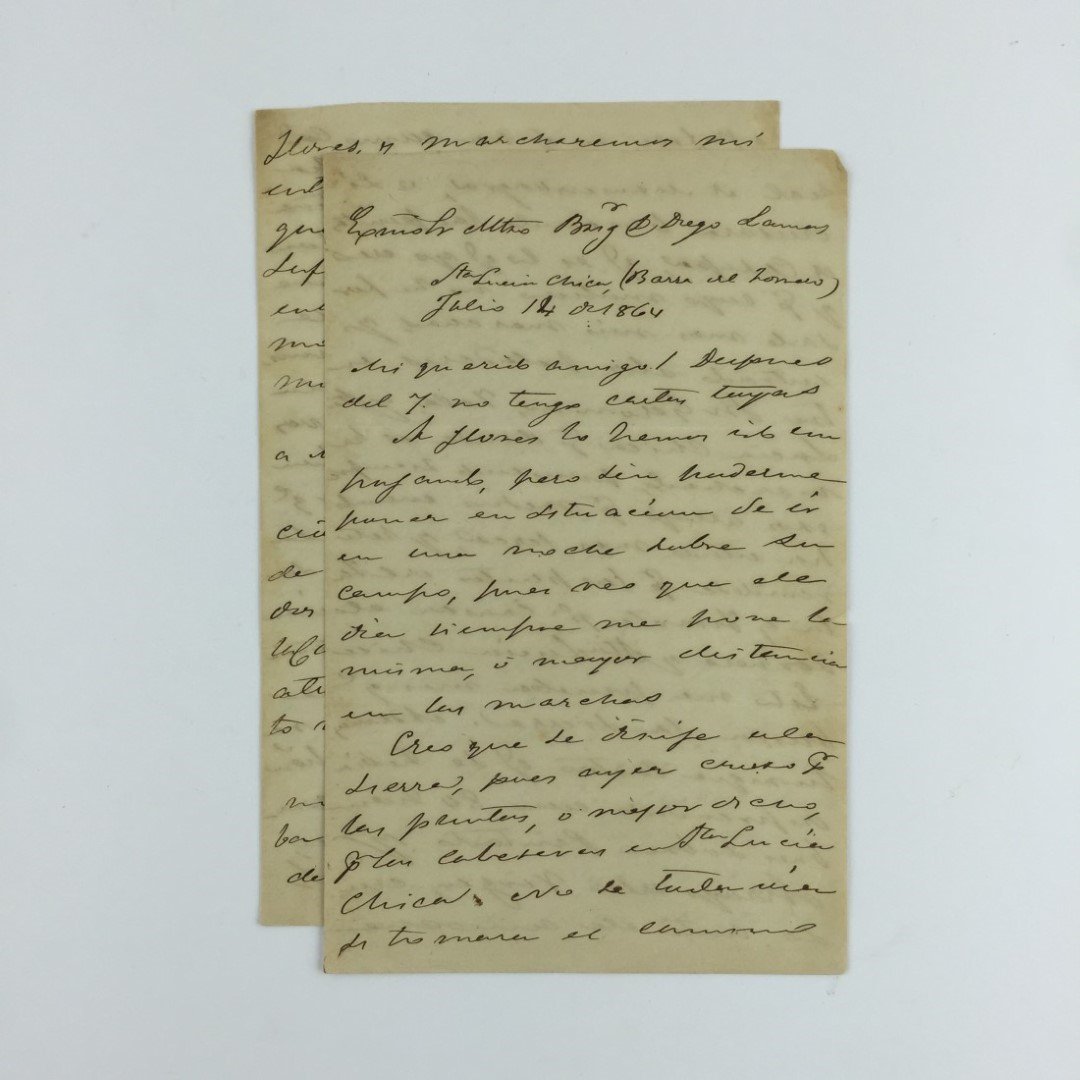 Flores, y marcharemos mi
ent
que
Inf
ent
mo
mi
a
ciu
de
dos
ati
to
ba
de
Exmo Sr Mtro Brigr D Diego Lamas
Sta Lucia Chica, (Barra del
Julio 14 de 1864
Mi querido amigo! Despues
del 7. no tengo cartas tuyas
A Flores lo hemos ido em
pujando, pero sin poderme
poner en situacion de ir
en una noche sobre su
campo, pues veo que de
dia siempre me pone la
misma, ó mayor distancia
en las marchas
Creo que se dirije a la
sierra, pues ayer cruzó pr
las puntas, o mejor dicho,
pr las cabeseras en Sta Lucia
Chica. No se todavia
si tomara el camino